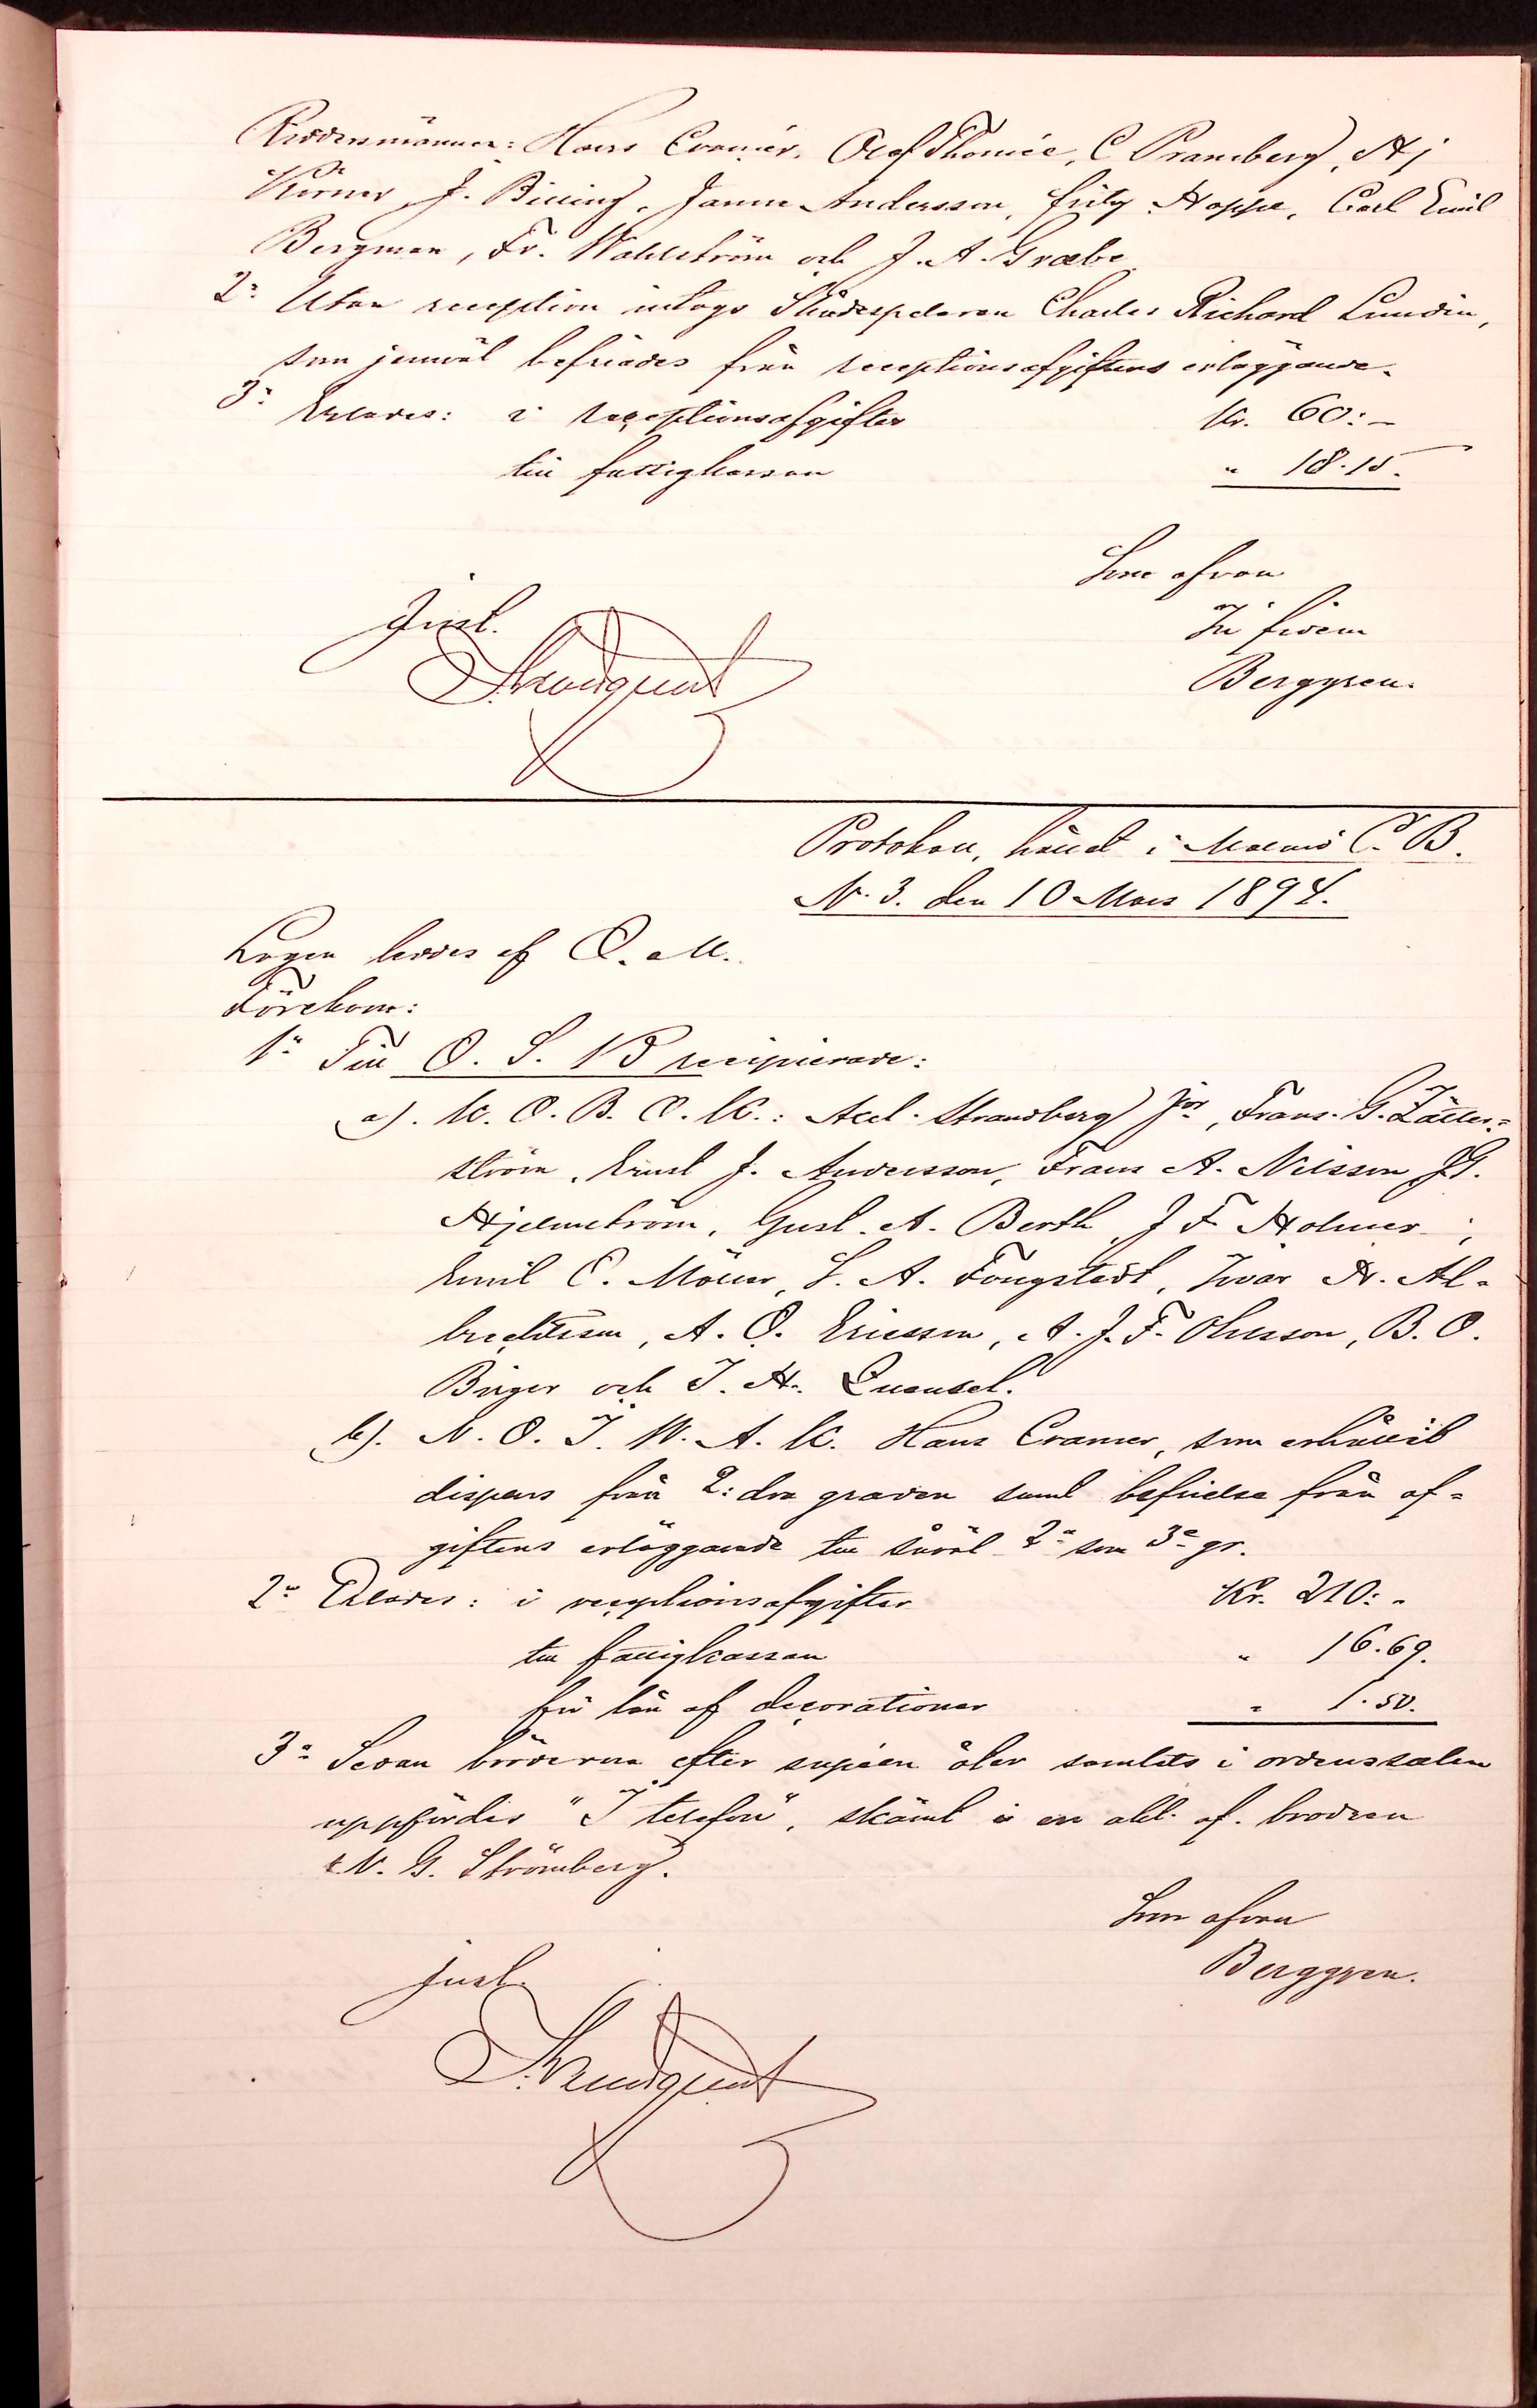 Riddersmänner: Hans Cramér, Olof Thomée, C Pramberg, Hj
Körner, J. Billing, Janne Andersson, Fritz Hoppe, Carl Emil
Bergman, Fr. Wahlström och J. A. Græbe
2: Utan reception intogs Skådespelaren Charles Richard Lundin,
som jemväl befriades från receptionsafgiftens erläggande.
3: Erlades: i receptionsafgifter Kr. 60:-
till fattigkassan " 18.15.
Som ofvan
In fidem
Just. Berggren.
Protokoll, hållet i Malmö C. B.
N. 3. den 10 Mars 1894.
Logen leddes af O. M.
Förekom:
1: Till O. S. K recipierade:
a). K. O. B. O. K.: Axel Strandberg Jor, Frans G. Zätter-
ström, Ernst J. Andersson, Frans A. Nilsson, J. G.
Hjelmström, Gust. A. Berth, J F Holmer;
Emil C. Möller, L. A. Tongstedt, Ivar H. Al-
brechtsson, A. O. Ericsson, A. J. F. Olusson, B. O.
Birger och J. H. Quensel.
b). N. O. J. W. A. K. Hans Cramer, som erhållit
dispens från 2:dra graden samt befrielse från af-
giftens erläggande till såväl 2: som 3: gr.
2: Erlades: i receptionsafgifter Kr. 210:-
till fattigkassan " 16.69.
för lån af decorationer " 1.50.
3: Sedan bröderna efter supéen åter samlats i ordenssalen
uppfördes "I telefon", skämt i en akt af brodren
N. G. Strömberg.
Som ofvan
Just. Berggren.